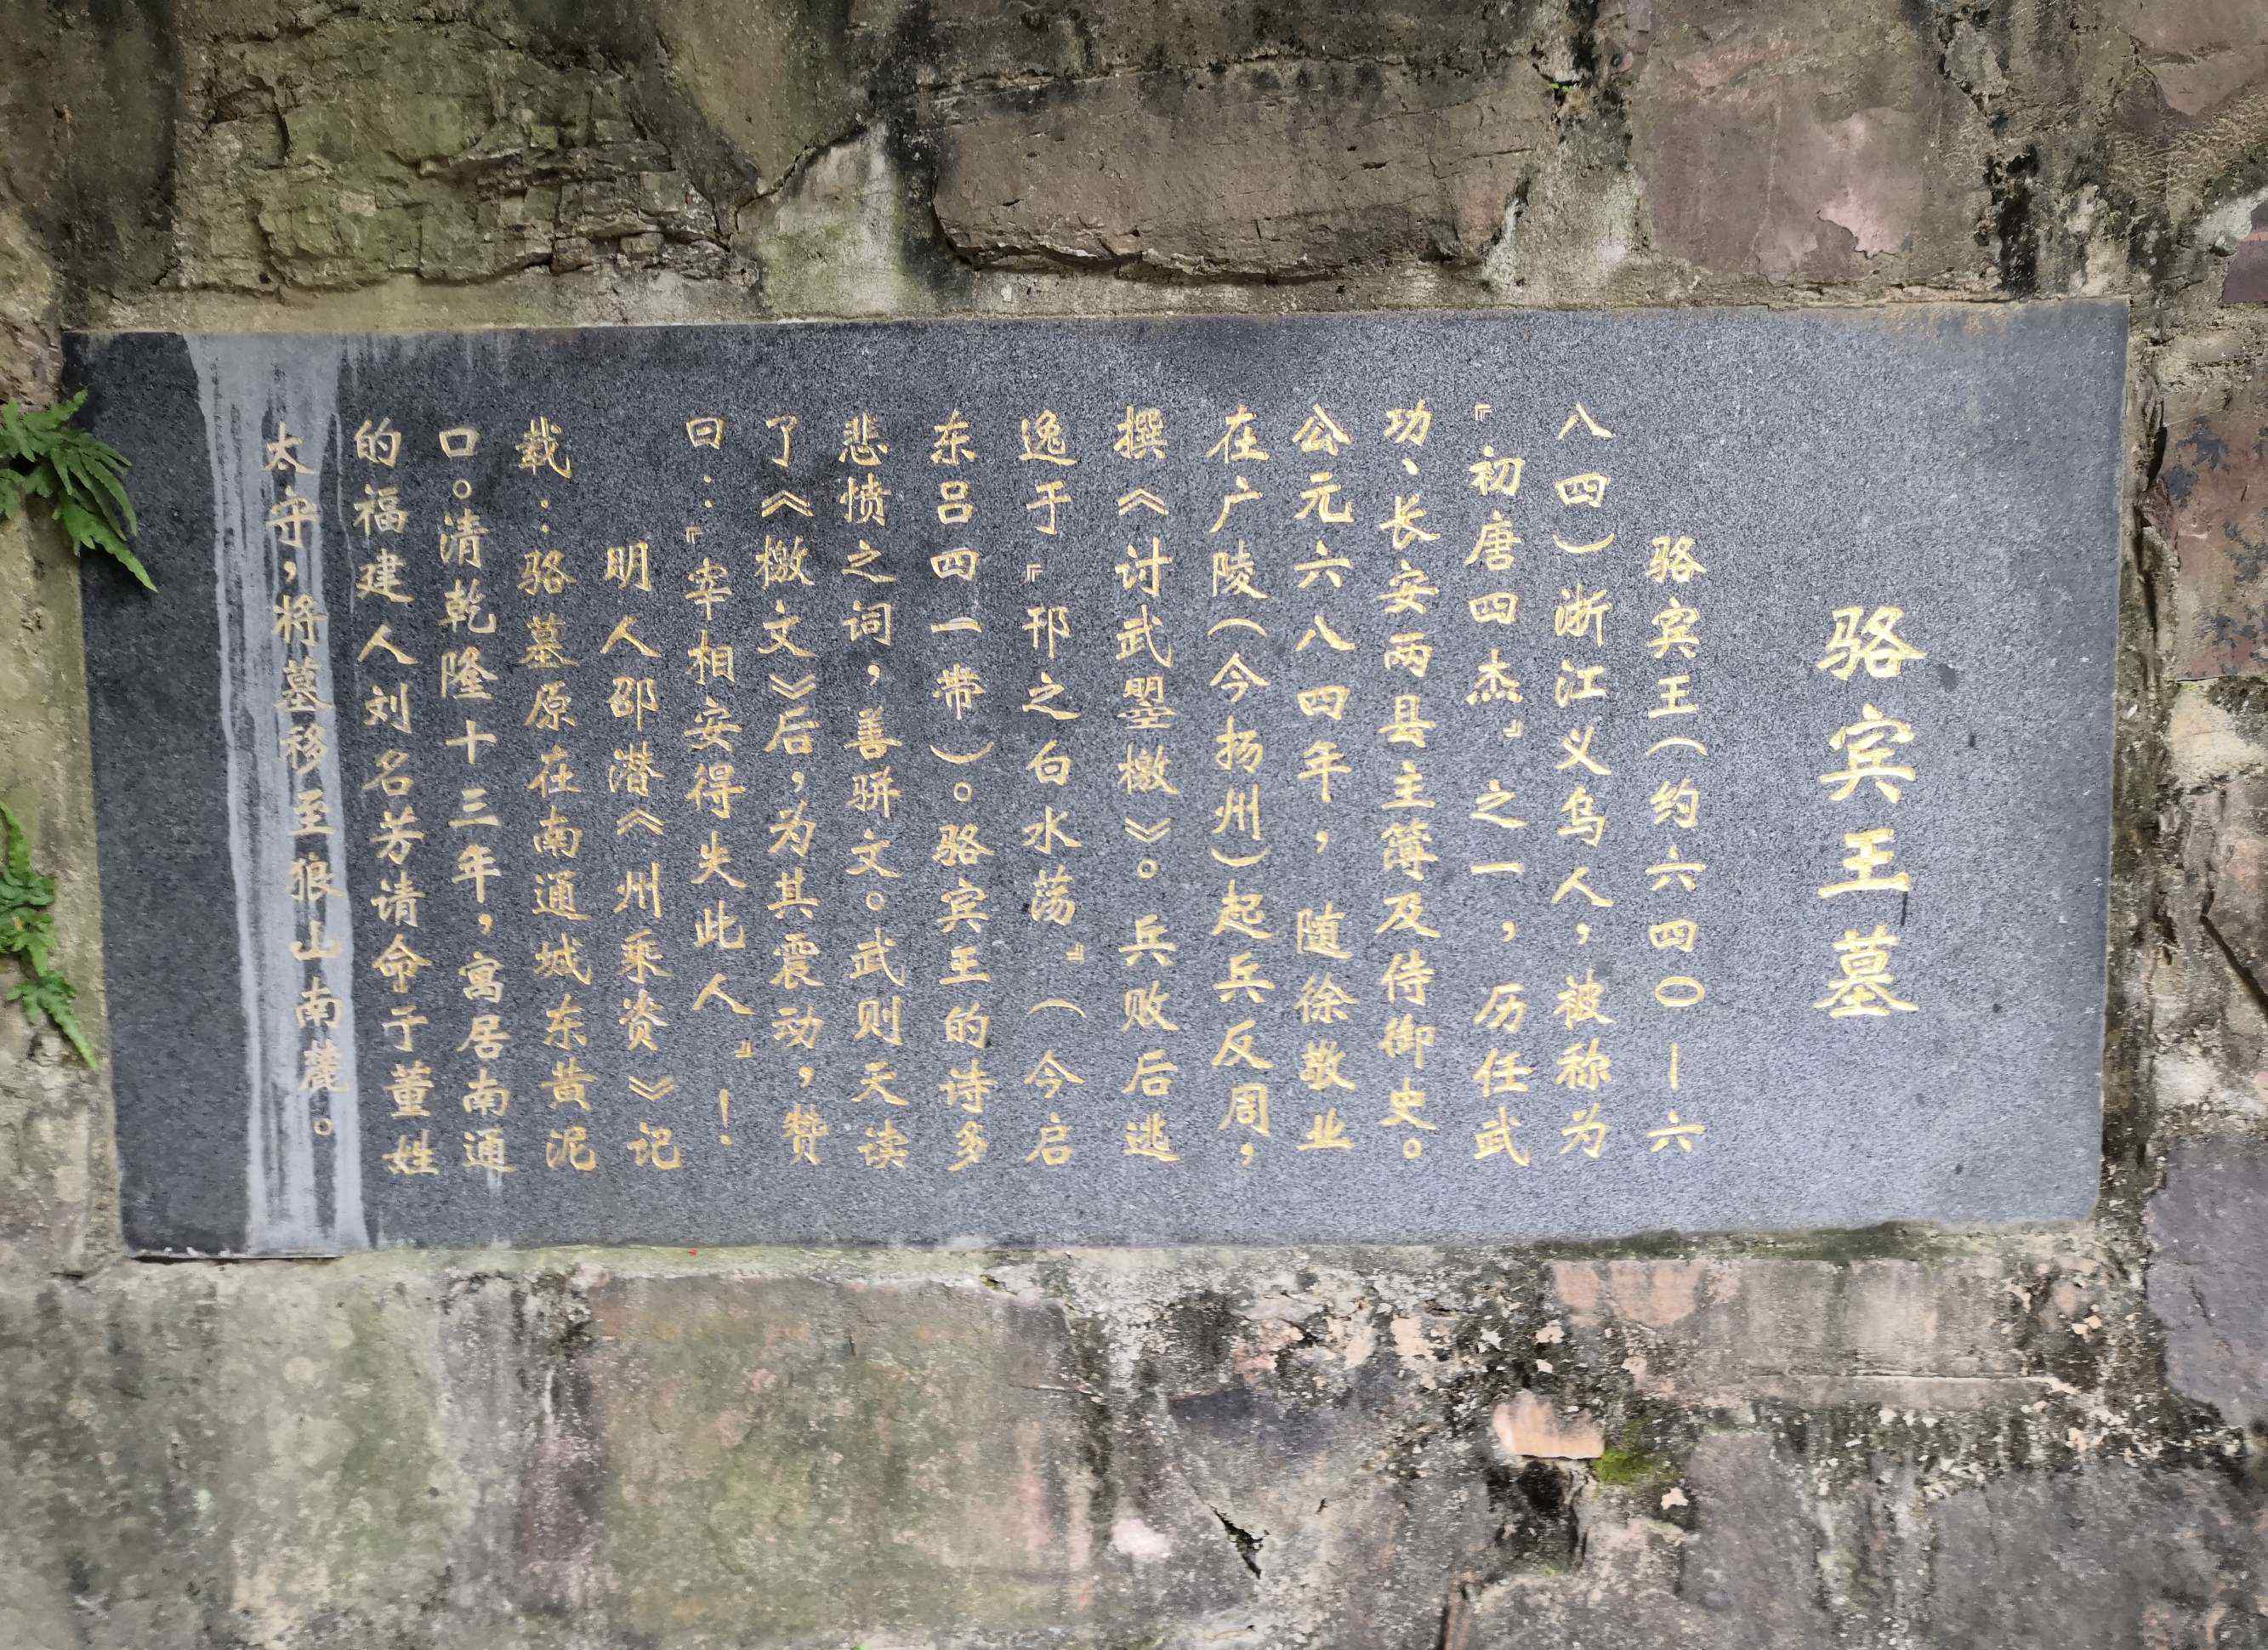 骆宾王墓
骆宾王（约六四〇—六
八四）浙江义乌人，被称为
『初唐四杰』之一，历任武
功、长安两县主簿及侍御史。
公元六八四年，随徐敬业
在广陵（今扬州）起兵反周，
撰《讨武曌檄》。兵败后逃
逸于『邗之白水荡』（今启
东吕四一带）。骆宾王的诗多
悲愤之词，善骈文。武则天读
了《檄文》后，为其震动，赞
曰：『宰相安得失此人』！
明人邵潜《州乘资》记
载：骆墓原在南通城东黄泥
口。清乾隆十三年，寓居南通
的福建人刘名芳请命于董姓
太守，将墓移至狼山南麓。